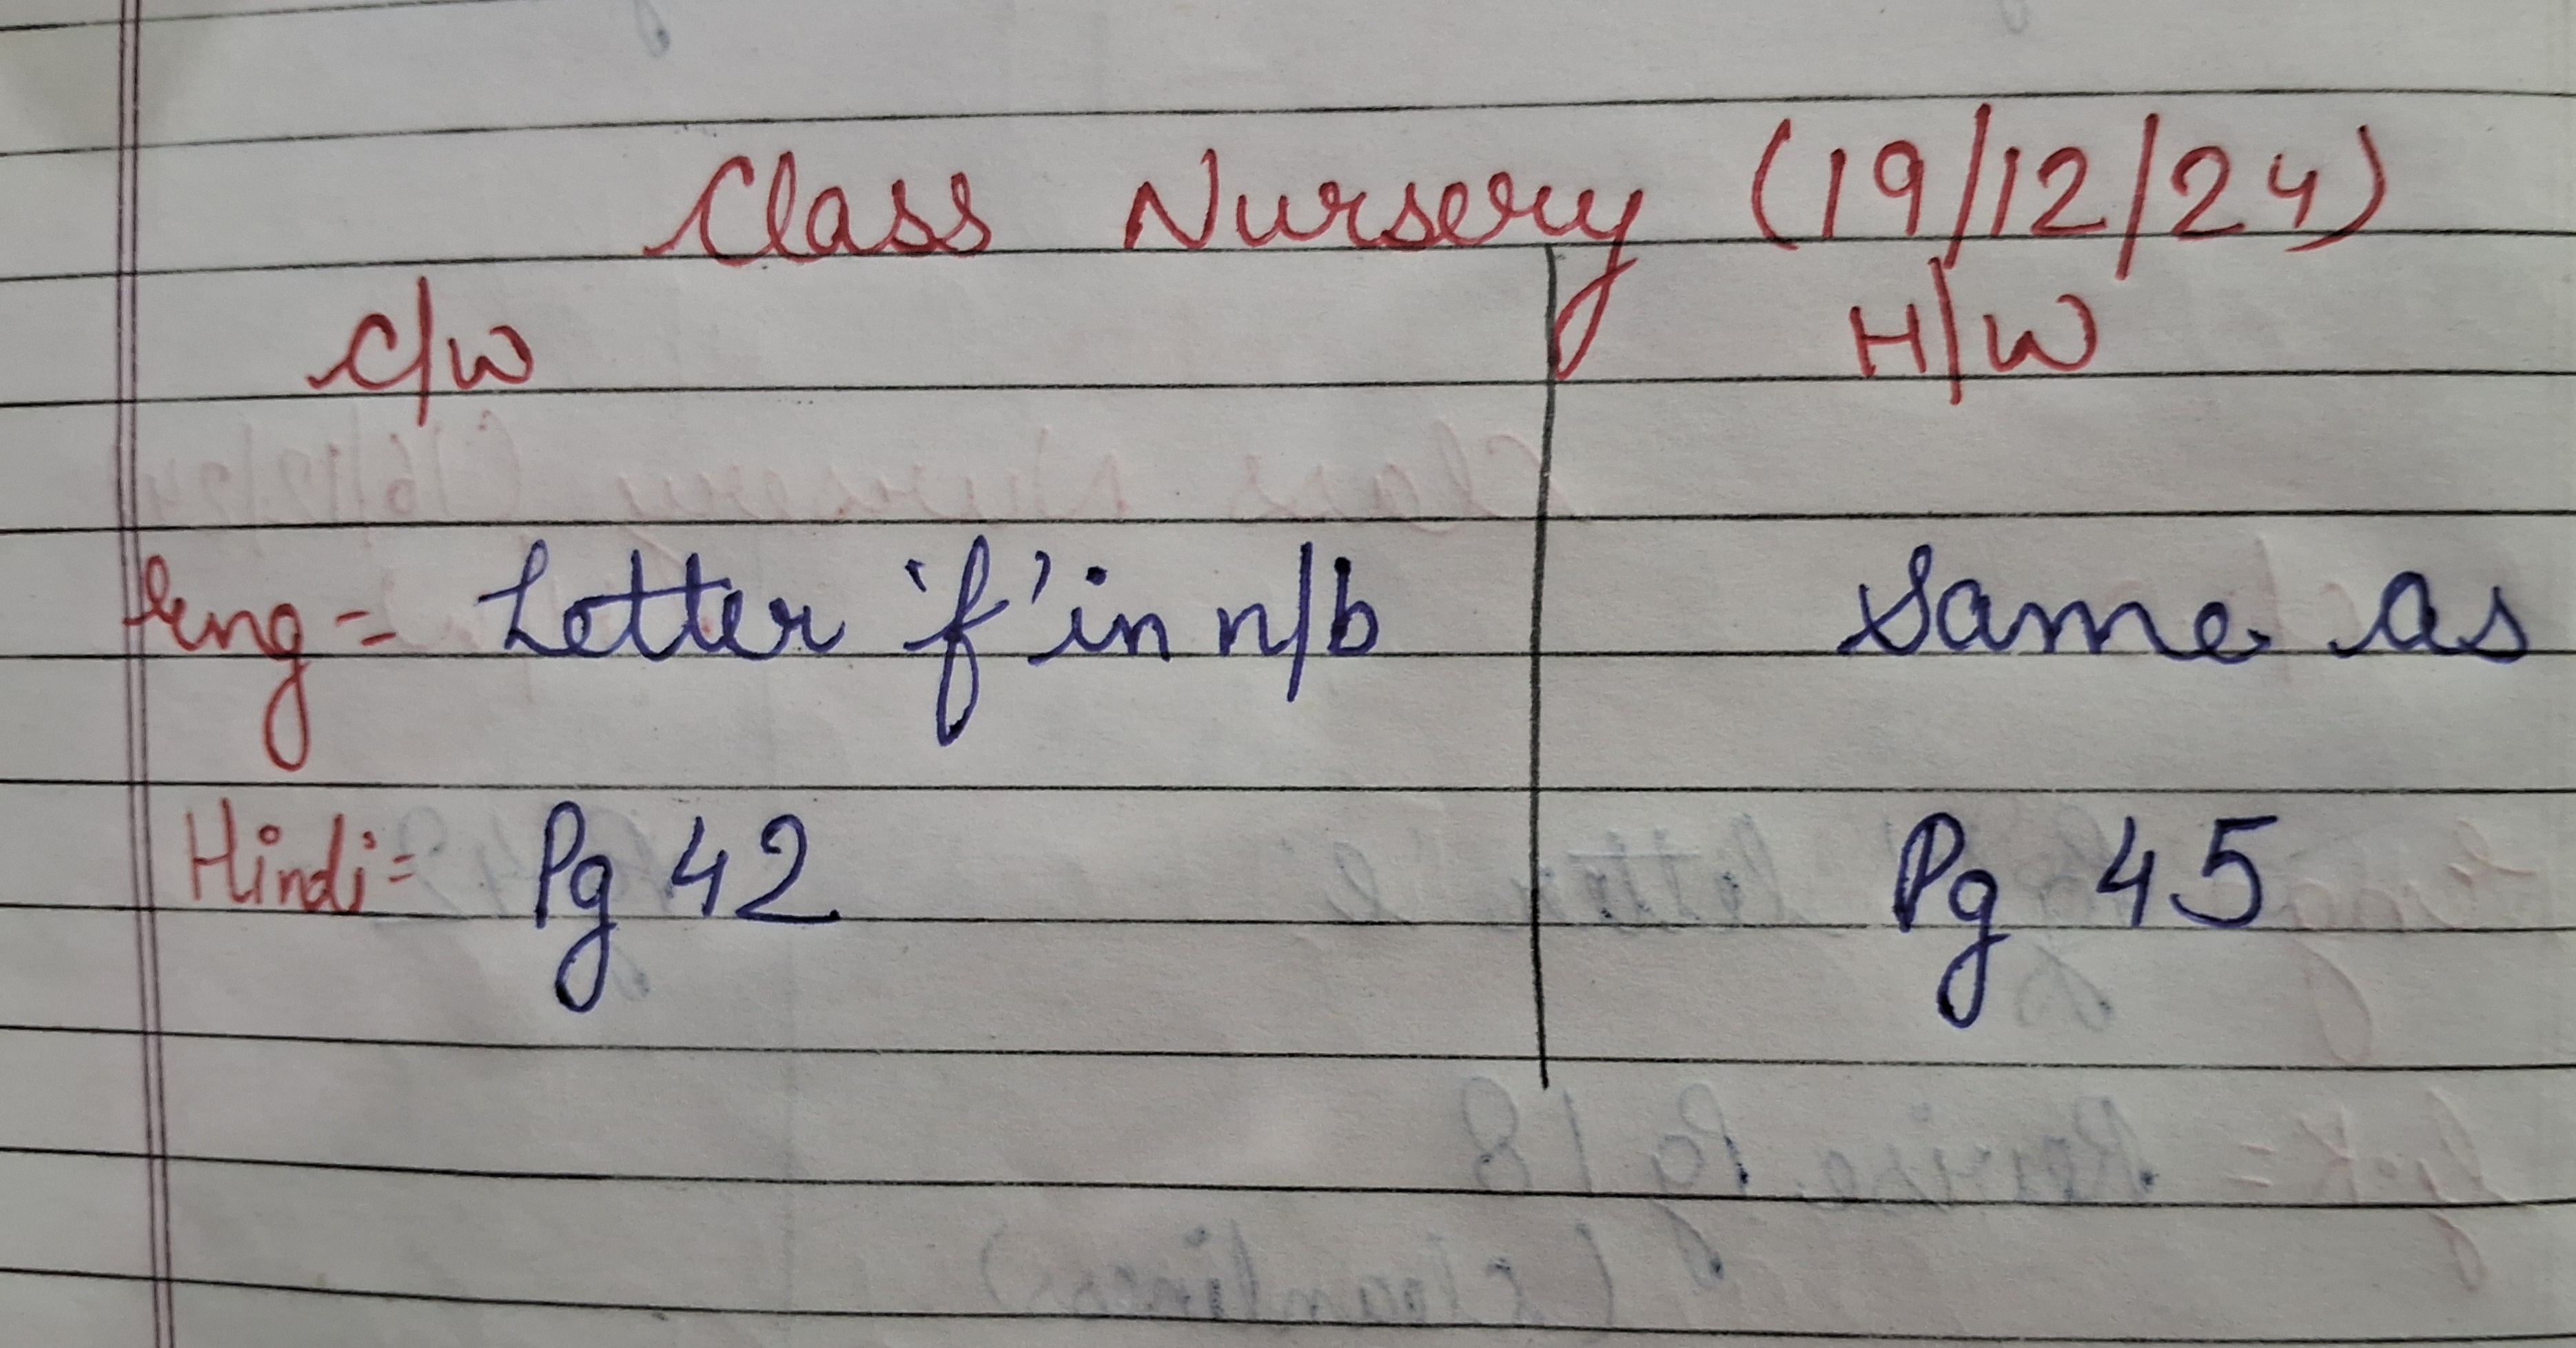 Class Nursery (19/12/24)
C/W H/W
Eng = Letter 'f' in n/b Same as
Hindi = Pg 42 Pg 45